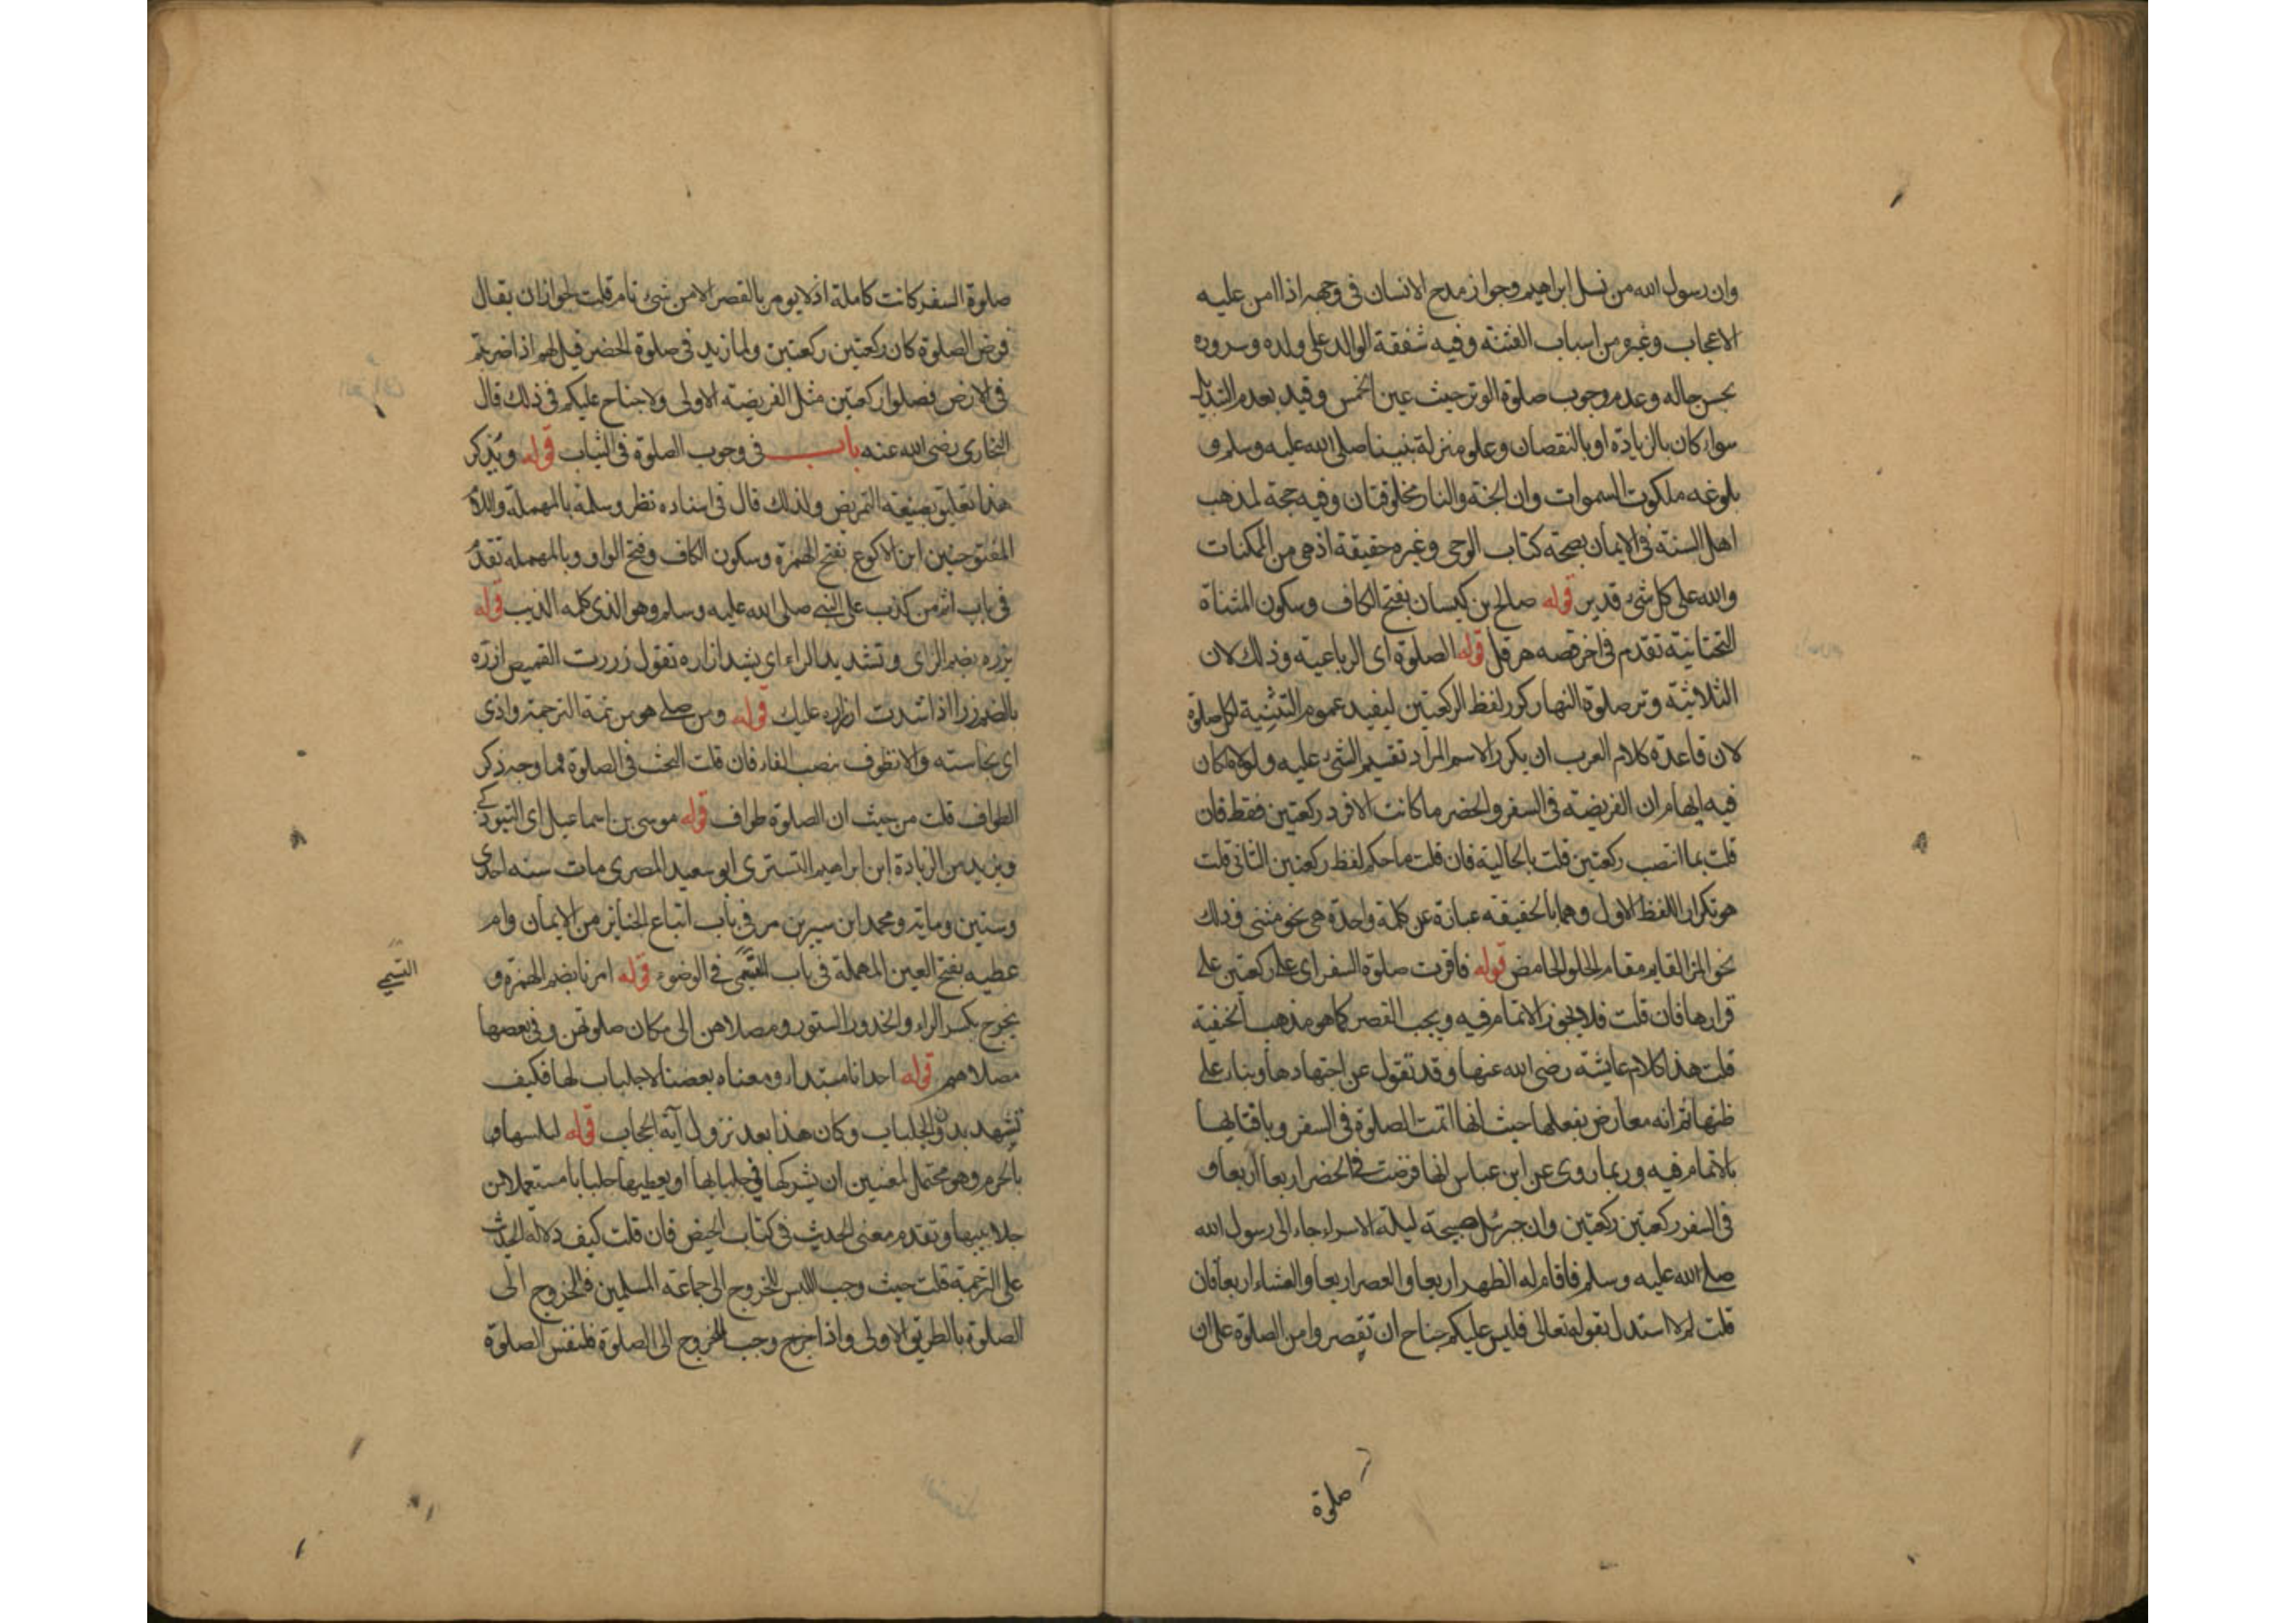 وان رسول الله من نسل ابراهيم وجواز مدح الانسان فى وجهه اذا امن عليه
الاعجاب وغيره من اسباب الفتنة وفيه شفقة الوالد على ولده وسروره
بحسن حاله وعدم وجوب صلوة الوتر حيث عين الخمس وقيد بعدم التبديل
سواء كان بالزيادة او بالنقصان وعلو منزلة نبينا صلى الله عليه وسلم و
بلوغه ملكوت السموات وان الجنة والنار مخلوقتان وفيه حجة لمذهب
اهل السنة فى الايمان بصحة كتاب الوحى وغيره حقيقة اذ هى من الممكنات
والله على كل شئ قدير قوله صالح بن كيسان بفتح الكاف وسكون المثناة
التحتانية تقدم فى اخر قصه هرقل قوله الصلوة اى الرباعية وذلك لان
الثلاثية وتر صلوة النهار كرر لفظ الركعتين ليفيد عموم التثنية لكل صلوة
لان قاعدة كلام العرب ان يكرر الاسم المراد تقسيم الشئ عليه ولولاه لكان
فيه ايهام ان الفريضة فى السفر والحضر ما كانت الا فرد ركعتين فقط فان
قلت بما انتصب ركعتين قلت بالحالية فان قلت ما حكم لفظ ركعتين الثانى قلت
هو تكرار اللفظ الاول وهما بالحقيقة عبارة عن كلمة واحدة هى نحو مثنى وذلك
نحو المز القايم مقام الحلو الحامض قوله فاقرت صلوة السفر اى على ركعتين على
قرارها فان قلت فلا يجوز الاتمام فيه ويجب القصر كما هو مذهب الحنفية
قلت هذا كلام عايشة رضى الله عنها وقد تقول عن اجتهادها وبناء على
ظنها ثم انه معارض بفعلها حيث انها اتمت الصلوة فى السفر وبافتائها
بالاتمام فيه وربما روى عن ابن عباس انها فرضت فى الحضر اربعا اربعا و
فى السفر ركعتين ركعتين وان جبرئيل صبيحة ليلة الاسراء جاء الى رسول الله
صلى الله عليه وسلم فاقام له الظهر اربعا والعصر اربعا والعشاء اربعا فان
قلت لم لا استدل بقوله تعالى فليس عليكم جناح ان تقصروا من الصلوة على ان
صلوة
صلوة السفر كانت كاملة اذ لا يومر بالقصر الا من شئ تام قلت لجواز ان يقال
فرض الصلوة كان ركعتين ركعتين ولما زيد فى صلوة الحضر قيل لهم اذا ضربتم
فى الارض فصلوا ركعتين مثل الفريضة الاولى ولا جناح عليكم فى ذلك قال
البخارى رضى الله عنه باب فى وجوب الصلوة فى الثياب قوله ويذكر
هذا تعليق بصيغة التمريض ولذلك قال فى اسناده نظر وسلمة بالمهملة واللام
المفتوحتين ابن الاكوع بفتح الهمزة وسكون الكاف وفتح الواو وبالمهملة تقدم
فى باب اثم من كذب على النبى صلى الله عليه وسلم وهو الذى كلمه الذيب قوله
يزره بضم الزاى وتشديد الراء اى يشد ازاره تقول زررت القميص ازره
بالضم زرا اذا شددت ازراره عليك قوله ومن صلى هو من تتمة الترجمة واذى
اى نجاسته والا نطوف بنصب الفاء فان قلت البحث فى الصلوة فما وجه ذكر
الطواف قلت من حيث ان الصلوة طواف قوله موسى بن اسماعيل اى التبوذكى
ويزيد من الزيادة ابن ابراهيم التسترى ابو سعيد المصرى مات سنه احدى
وستين وماية ومحمد ابن سيرين مر فى باب اتباع الجنايز من الايمان وام
عطيه بفتح العين المهملة فى باب التيمى فى الوضوء قوله امرنا بضم الهمزة و
التيمي
يخرج بكسر الراء والخدور الستور ومصلاهن الى مكان صلوتهن وفى بعضها
مصلاهم قوله احدانا مبتداء ومعناه بعضنا لا جلباب لها فكيف
تشهد بدون الجلباب وكان هذا بعد نزول آية الحجاب قوله لتلبسها
بالجزم وهو محتمل لمعنيين ان تشركها فى جلبابها او يعطيها جلبابا مستعملا من
جلابيبها وتقدم معنى الحديث فى كتاب الحيض فان قلت كيف دلالة الحديث
على الترجمة قلت حيث وجب اللبس للخروج الى جماعة المسلمين فللخروج الى
الصلوة بالطريق الاولى واذا خرج وجب للخروج الى الصلوة فلنفس الصلوة